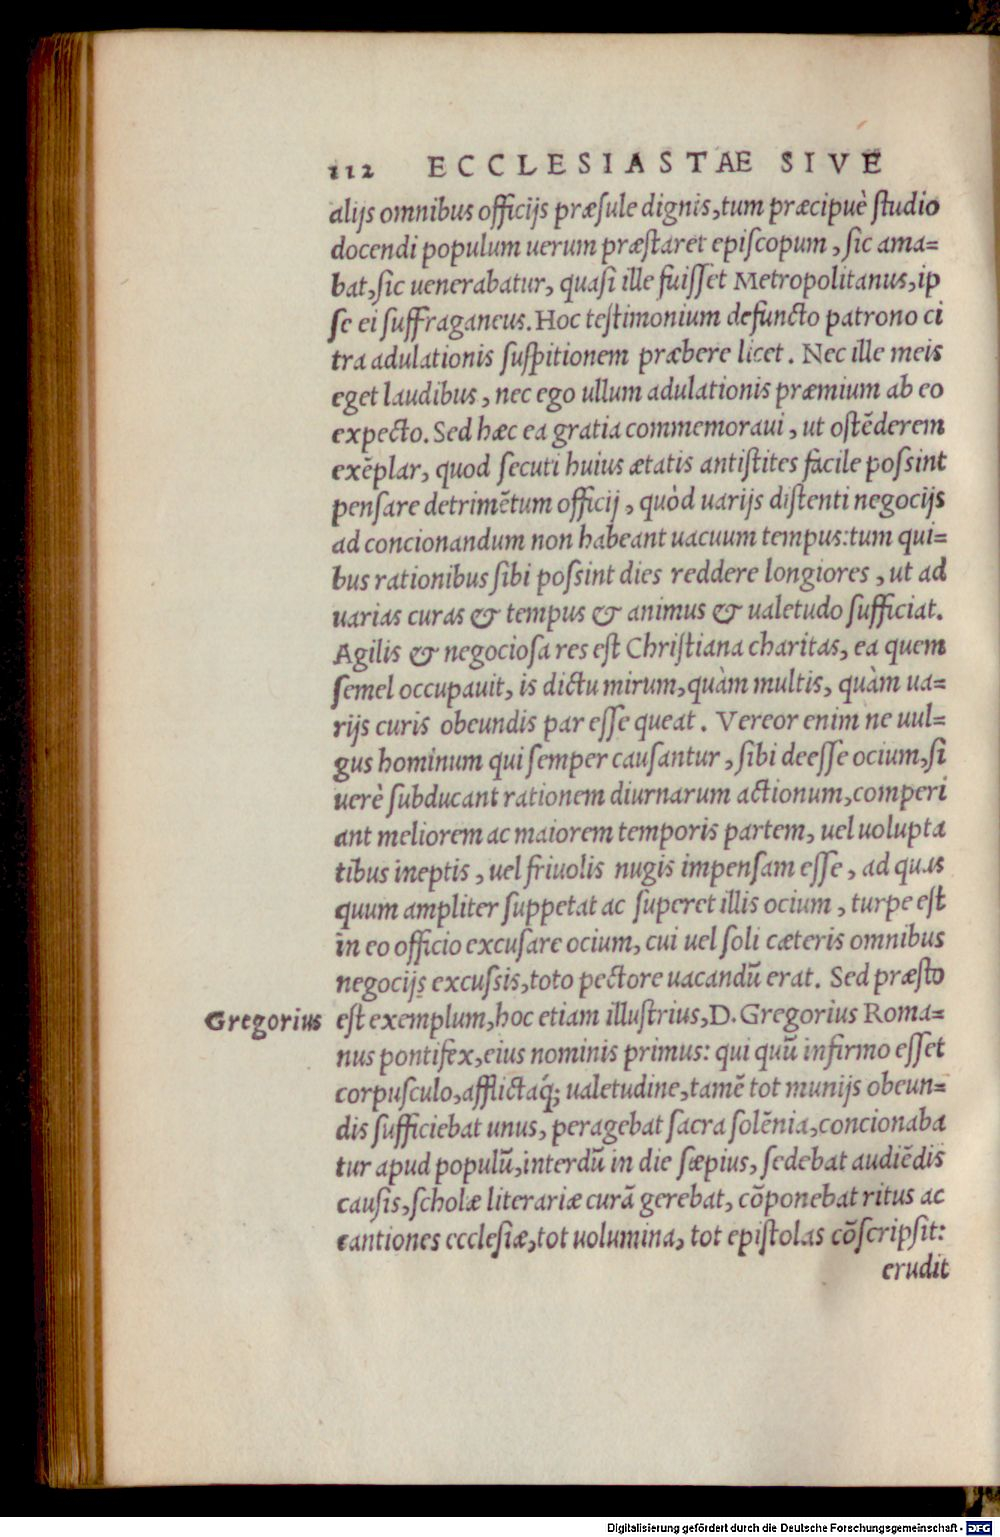 112 ECCLESIASTAE SIVE
alijs omnibus officijs præſule dignis, tum præcipuè ſtudio
docendi populum uerum præſtaret epiſcopum, ſic ama=
bat, ſic uenerabatur, quaſi ille fuiſſet Metropolitanus, ip
ſe ei ſuffraganeus. Hoc teſtimonium defuncto patrono ci
tra adulationis ſuſpitionem præbere licet. Nec ille meis
eget laudibus, nec ego ullum adulationis præmium ab eo
expecto. Sed hæc ea gratia commemoraui, ut oſtẽderem
exẽplar, quod ſecuti huius ætatis antiſtites facile poſsint
penſare detrimẽtum officij, quòd uarijs diſtenti negocijs
ad concionandum non habeant uacuum tempus: tum qui=
bus rationibus ſibi poſsint dies reddere longiores, ut ad
uarias curas & tempus & animus & ualetudo ſufficiat.
Agilis & negocioſa res eſt Chriſtiana charitas, ea quem
ſemel occupauit, is dictu mirum, quàm multis, quàm ua=
rijs curis obeundis par eſſe queat. Vereor enim ne uul=
gus hominum qui ſemper cauſantur, ſibi deeſſe ocium, ſi
uerè ſubducant rationem diurnarum actionum, comperi
ant meliorem ac maiorem temporis partem, uel uolupta
tibus ineptis, uel friuolis nugis impenſam eſſe, ad quas
quum ampliter ſuppetat ac ſuperet illis ocium, turpe eſt
in eo officio excuſare ocium, cui uel ſoli cæteris omnibus
negocijs excuſsis, toto pectore uacandũ erat. Sed præſto
Gregorius eſt exemplum, hoc etiam illuſtrius, D. Gregorius Roma=
nus pontifex, eius nominis primus: qui quũ infirmo eſſet
corpuſculo, afflictaq́; ualetudine, tamẽ tot munijs obeun=
dis ſufficiebat unus, peragebat ſacra ſolẽnia, concionaba
tur apud populũ, interdũ in die ſæpius, ſedebat audiẽdis
cauſis, ſcholæ literariæ curã gerebat, cõponebat ritus ac
cantiones eccleſiæ, tot uolumina, tot epiſtolas cõſcripſit:
erudit
Digitalisierung gefördert durch die Deutsche Forschungsgemeinschaft - DFG